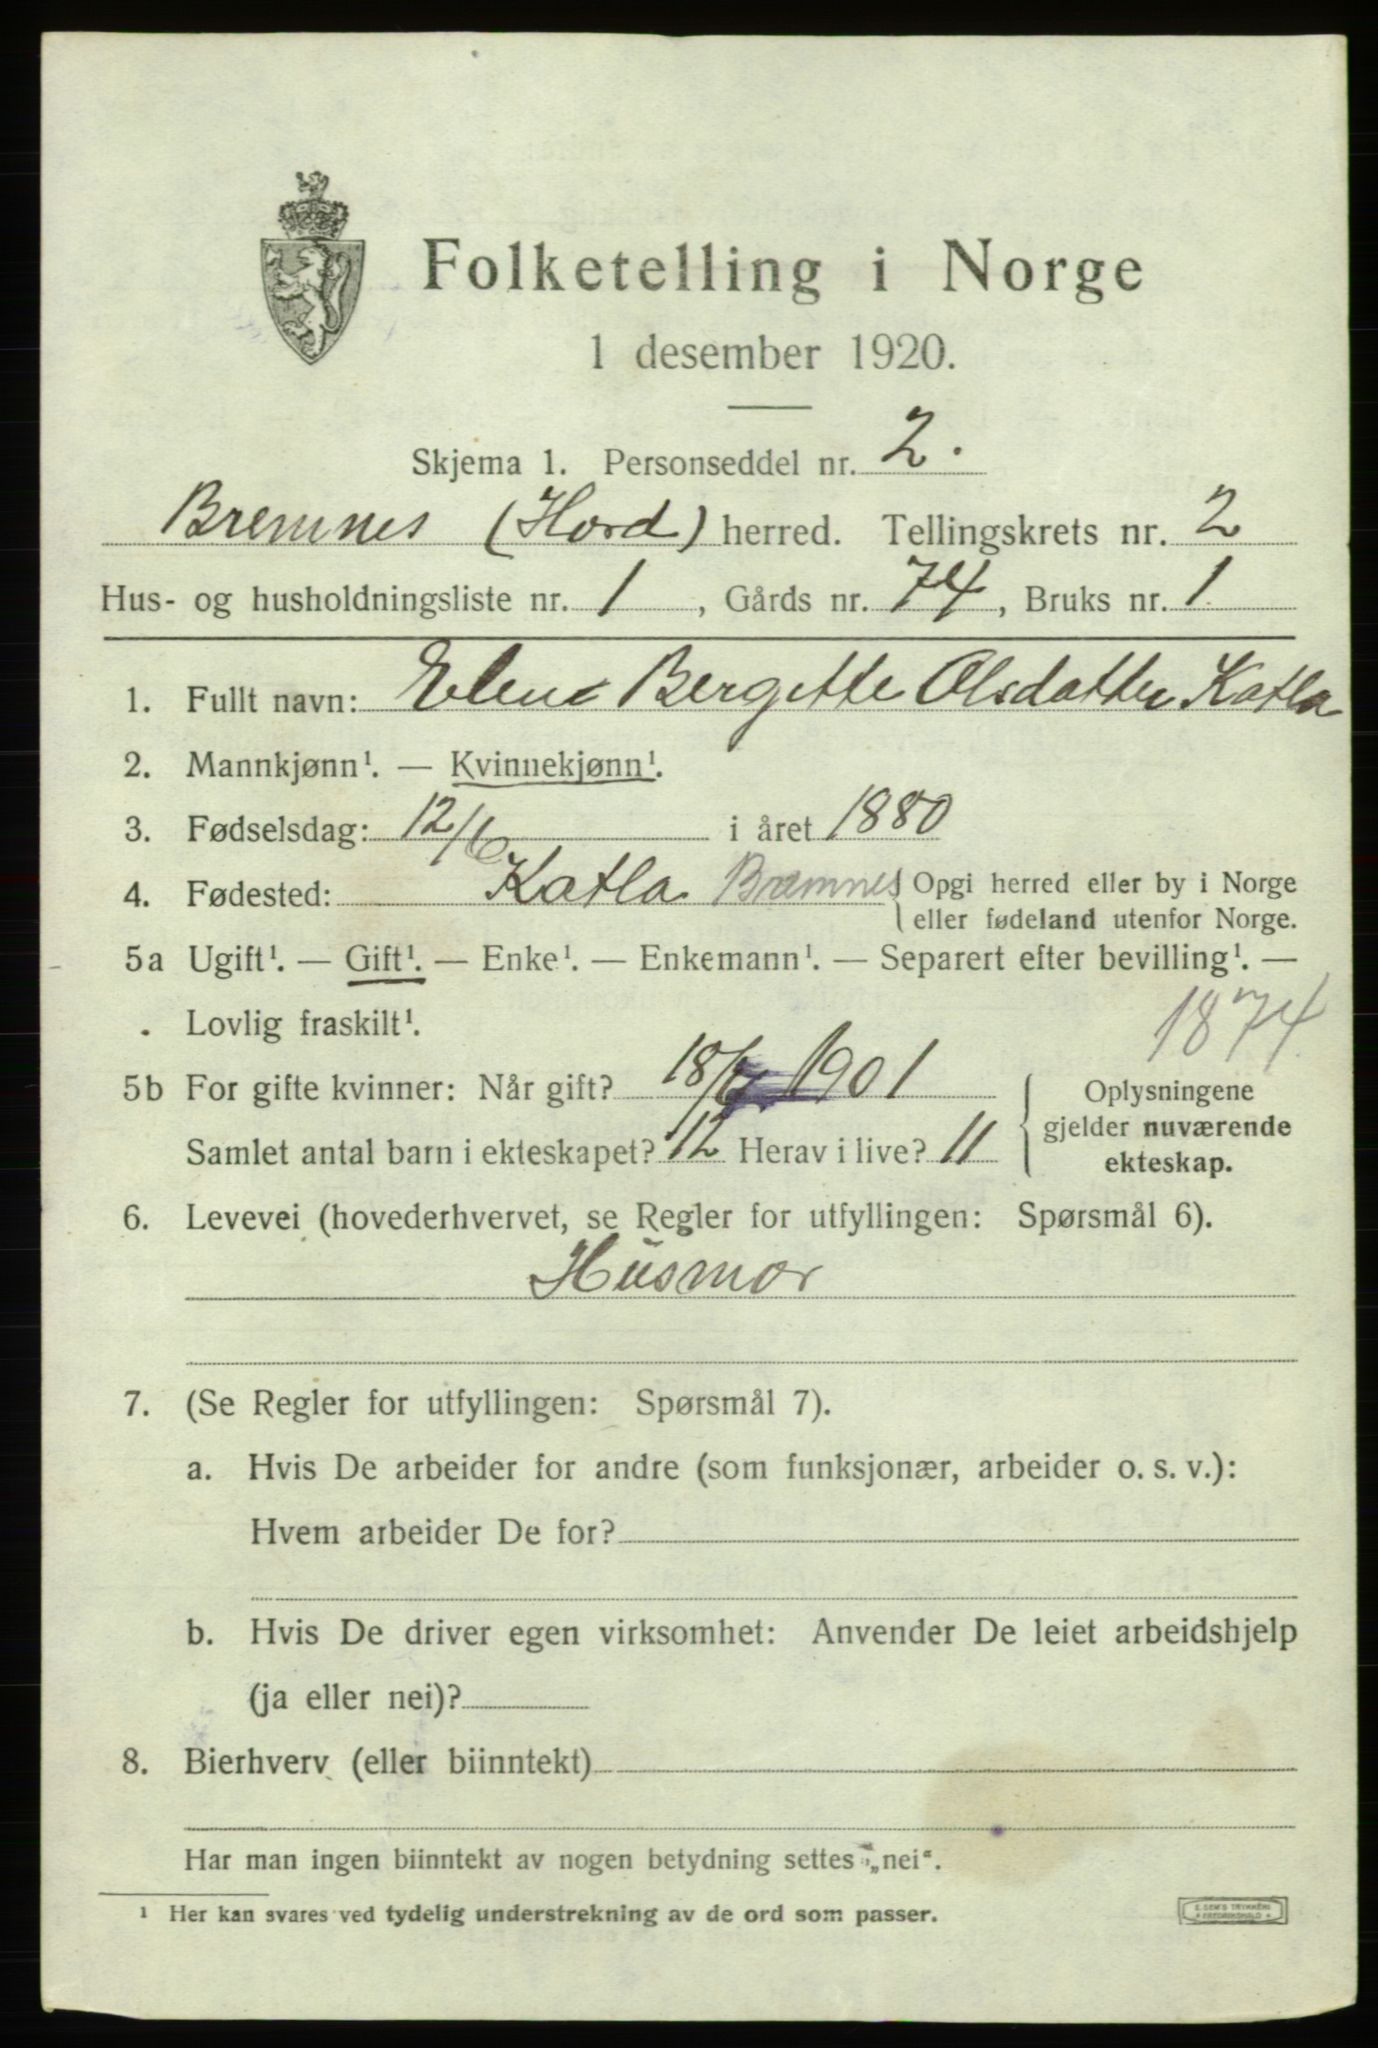 Folketelling i Norge
1 desember 1920.
Skjema 1. Personseddel nr. 2.
Bremnes (Hord) herred. Tellingskrets nr. 2
Hus- og husholdningsliste nr. 1, Gårds nr. 74, Bruks nr. 1
1. Fullt navn: Elene Bergitte Olsdatter Katla
2. Mannkjønn¹. — Kvinnekjønn¹.
3. Fødselsdag: 12/6 i året 1880
4. Fødested: Katla Bremnes { Opgi herred eller by i Norge
eller fødeland utenfor Norge.
5a Ugift¹. — Gift¹. — Enke¹. — Enkemann¹. — Separert efter bevilling¹. —
Lovlig fraskilt¹.
1874
5b For gifte kvinner: Når gift? 18/ 1901
Samlet antal barn i ekteskapet? 12 Herav i live? 11
{ Oplysningene
gjelder nuværende
ekteskap.
6. Levevei (hovederhvervet, se Regler for utfyllingen: Spørsmål 6).
Husmor
7. (Se Regler for utfyllingen: Spørsmål 7).
a. Hvis De arbeider for andre (som funksjonær, arbeider o. s. v.):
Hvem arbeider De for?
b. Hvis De driver egen virksomhet: Anvender De leiet arbeidshjelp
(ja eller nei)?
8. Bierhverv (eller biinntekt)
Har man ingen biinntekt av nogen betydning settes „nei“.
¹ Her kan svares ved tydelig understrekning av de ord som passer.
E. SEM'S TRYKKERI
FREDRIKSHALD